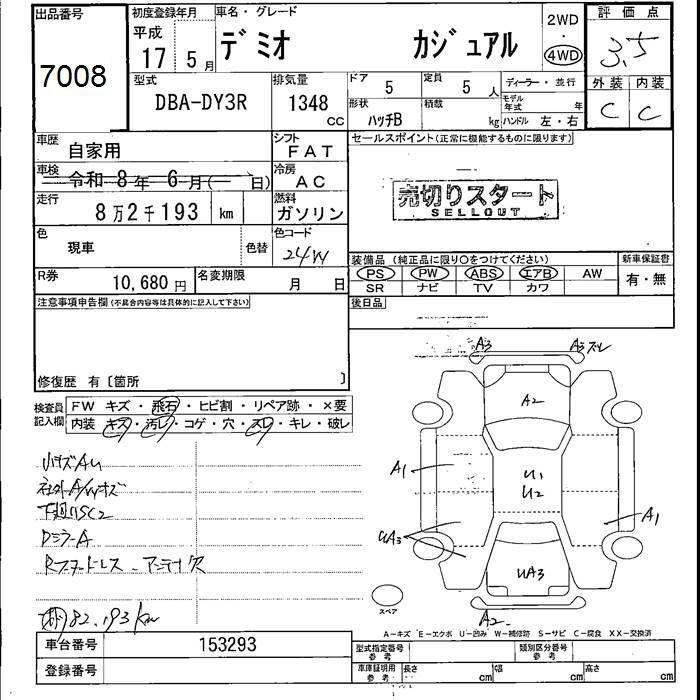 出品番号
7008
初度登録年月
平成
17年 5月
車名・グレード
デミオ カジュアル
2WD
・
4WD
評価点
3.5
外装 内装
C C
型式
DBA-DY3R
排気量
1348
CC
ドア
5
定員
5人
ディーラー・並行
形状
ハッチB
積載
kg
モデル年式
年
ハンドル 左・右
車歴
自家用
シフト
FAT
セールスポイント(正常に機能するものに限ります)
車検
令和 8年 6月( 日)
冷房
AC
売切りスタート
SELLOUT
走行
8万2千193 km
燃料
ガソリン
色
現車
色替
色コード
24W
装備品(純正品に限り○をつけてください)
新車保証書
PS PW ABS エアB AW
有・無
SR ナビ TV カワ
R券
10,680円
名変期限
月 日
後日品
注意事項申告欄(不具合内容等は具体的に記入して下さい)
修復歴 有〔箇所 〕
検査員記入欄
FW キズ・飛石・ヒビ割・リペア跡・×要
内装 キズ・汚レ・コゲ・穴・スレ・キレ・破レ
小キズAU
社外A/Wキズ
下廻りSC2
DミラーA
アンテナ欠
82,193km
A3
A3ズレ
A2
A1
U1
U2
A1
UA3
UA3
A2
スペア
A-キズ E-エクボ U-凹み W-補修跡 S-サビ C-腐食 XX-交換済
車台番号
153293
登録番号
型式指定番号
参考
類別区分番号
参考
車庫証明用
参考
長さ cm
幅 cm
高さ cm